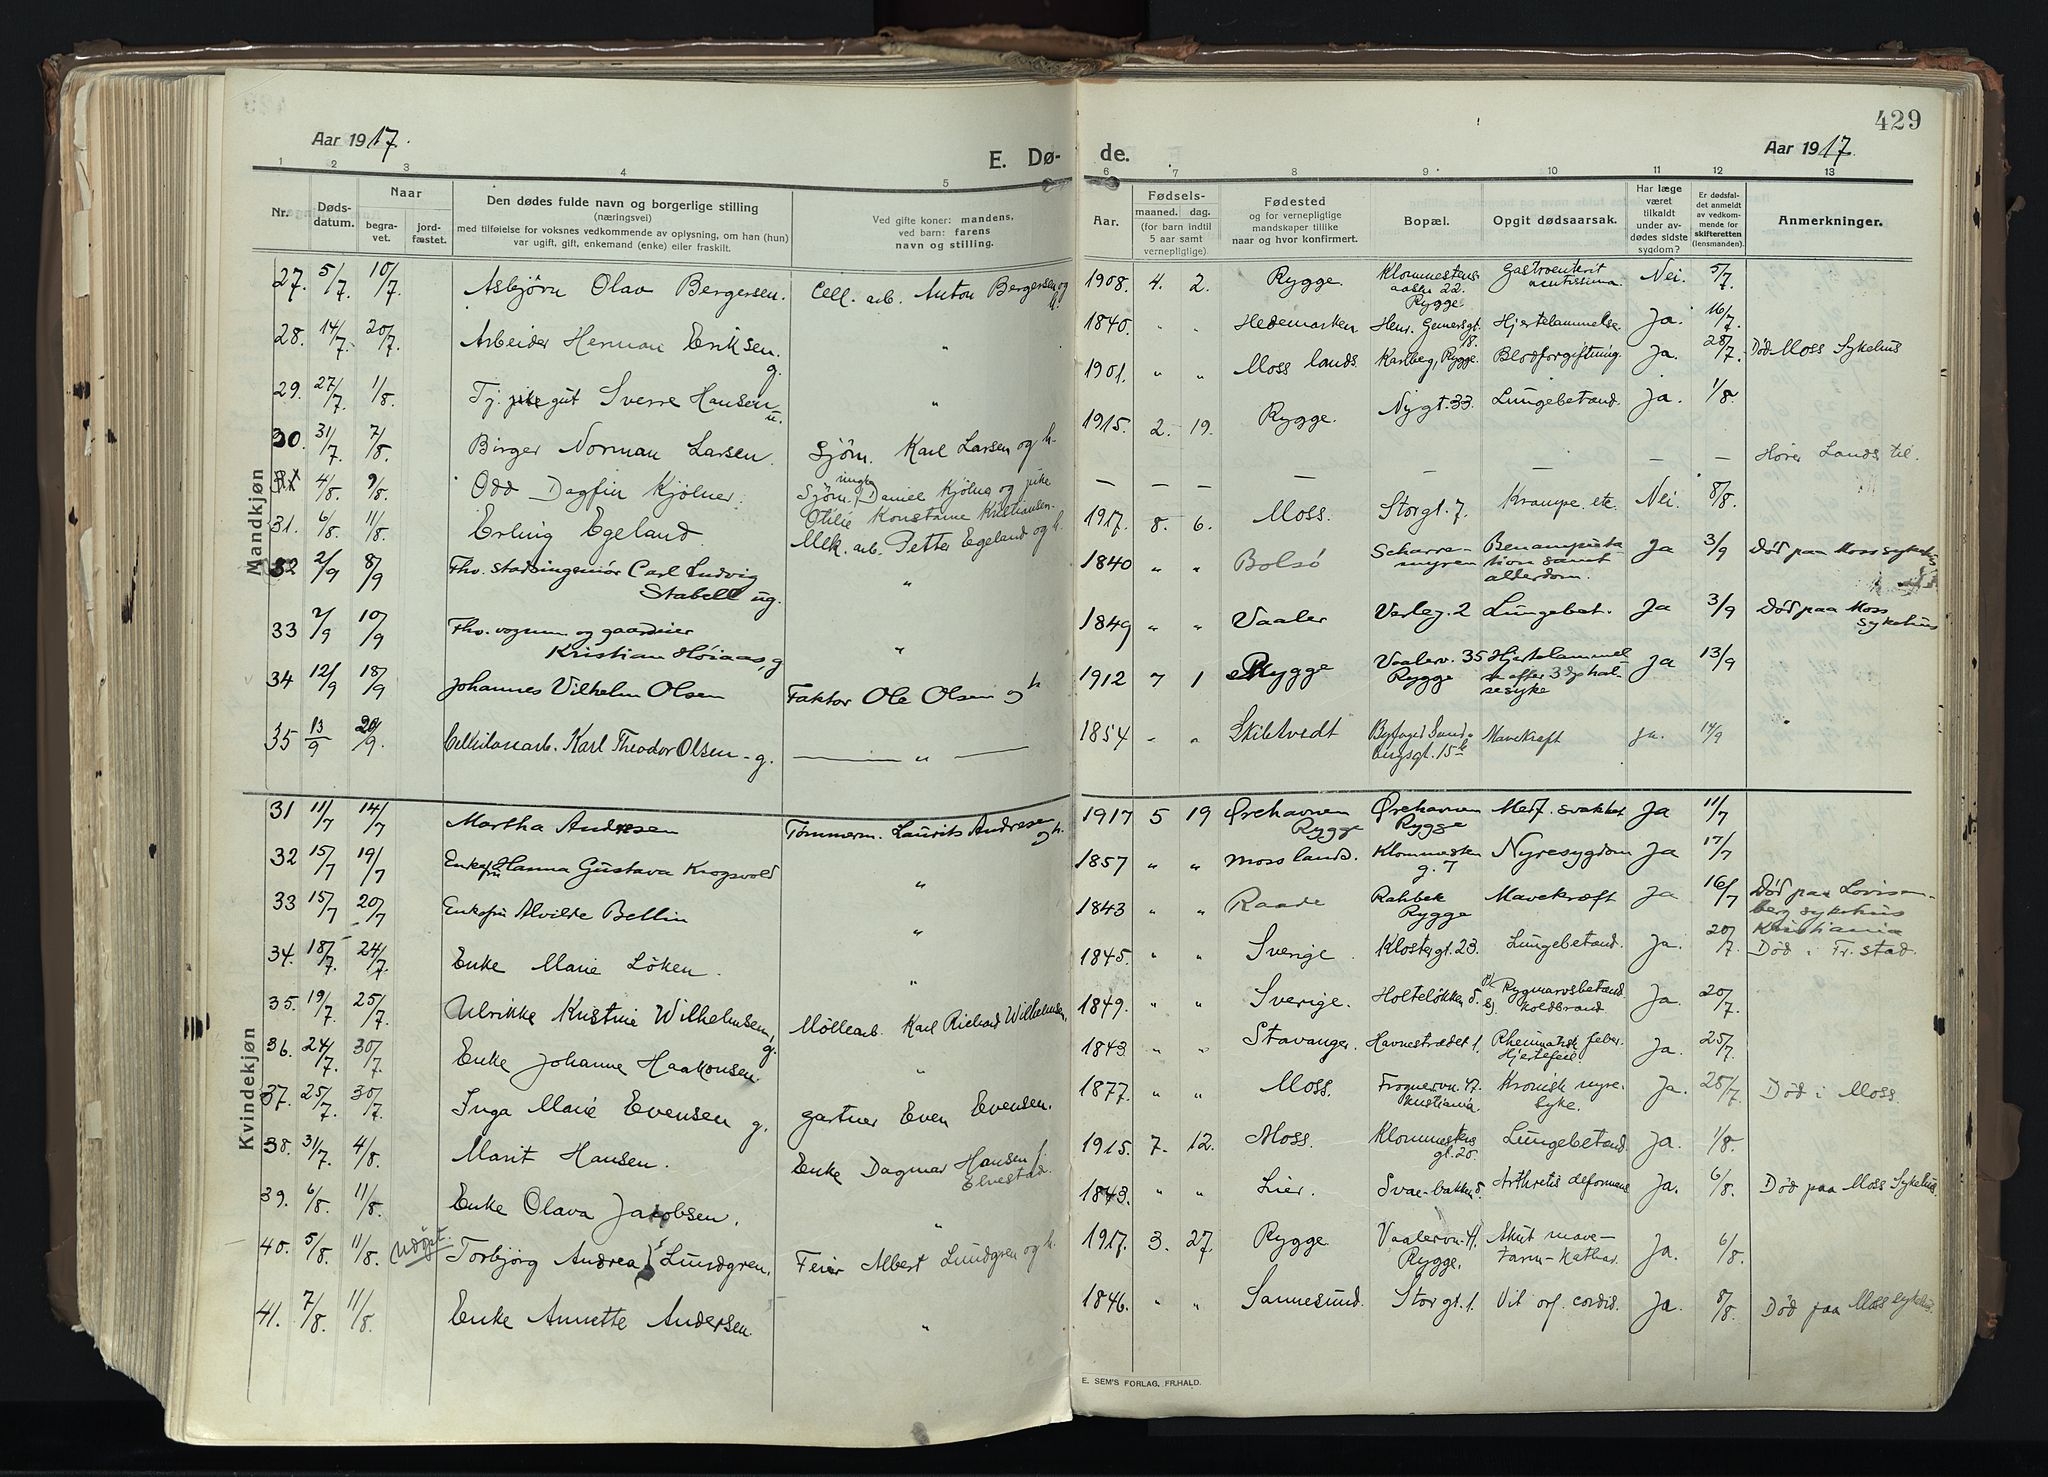 429
Aar 1917.
E. Dø-
de.
Aar 1917.
1 2 3 4 5
6 7 8 9 10 11 12 13
Nr.
Døds-
datum.
Naar
begra-
vet.
jord-
fæstet.
Den dødes fulde navn og borgerlige stilling
(næringsvei)
med tilføielse for voksnes vedkommende av oplysning, om han (hun)
var ugift, gift, enkemand (enke) eller fraskilt.
Ved gifte koner: mandens,
ved barn: farens
navn og stilling.
Aar.
Fødsels-
maaned. dag.
(for barn indtil
5 aar samt
vernepligtige)
Fødested
og for vernepligtige
mandskaper tillike
naar og hvor konfirmert.
Bopæl.
Opgit dødsaarsak.
Har læge
været
tilkaldt
under av-
dødes sidste
sygdom?
Er dødsfal-
det anmeldt
av vedkom-
mende for
skifteretten
(lensmanden).
Anmerkninger.
Mandkjøn
27. 5/7 10/7 Asbjörn Olav Bergersen. Cell. arb. Anton Bergersen og h. 1908. 4. 2. Rygge. Klommestens- 22. Rygge Gastroenterit acutissima. Nei. 5/7.
28. 14/7. 20/7. Arbeider Herman Eriksen. g. " 1840. " " Hedemarken Henr. Gernersgt. 8. Hjertelammelse. Ja. 16/7.
29. 27/7. 1/8. Tj. gut Sverre Hansen u. " 1901. " " Moss lands. Karlberg, Rygge. Blodforgiftning. Ja. 28/7. Död Moss Sykehus
30. 31/7. 7/8. Birger Norman Larsen. Sjöm. Karl Larsen og h. 1915. 2. 19. Rygge. Nygt. 33. Lungebetænd. Ja. 1/8.
4/8. 9/8. Odd Dagfin Kjölner. Sjöm. ungk. Daniel Kjölner og pike Otilie Konstanse Kristiansen. — — — — — — — — Hörer Lands til.
31. 6/8. 11/8. Erling Egeland. Mek. arb. Petter Egeland og h. 1917. 8. 6. Moss. Storgt. 7. Krampe etc. Nei. 8/8.
32 2/9 8/9 Fhv. stadsingeniör Carl Ludvig Stabell ug. " 1840 " " Bolsö Scharre- myren Benamputa- tion samt alderdom. Ja 3/9 Död paa Moss sykehus
33 2/9 10/9 Fhv. vognm og gaardeier Kristian Höiaas, g " 1849 " " Vaaler Varleg. 2 Lungebet. Ja 3/9 Död paa Moss sykehus
34 12/9 18/9 Johannes Vilhelm Olsen Faktor Ole Olsen og h 1912 7 1 Rygge Vaalerv. 35 Rygge Hjertelammel se efter hal- sesyke Ja 13/9
35 13/9 20/9. Cellulosearb. Karl Theodor Olsen - g. — " — 1854 - " Skibtvedt Byfoged Sand- bergsgt. 15 b Mavekræft ja. 14/9
Kvindekjøn
31 11/7 14/7 Martha Andresen Tömmerm. Laurits Andresen og h. 1917 5 19 Ørehavnen Rygge Ørehavnen Rygge Medf. svakhet Ja 11/7
32 15/7 19/7 Enkefru Hanna Gustava Krogsvold " 1857 " " Moss lands. Klommesten g. 7 Nyresygdom Ja 17/7
33 15/7 20/7 Enkefru Alvilde Bellin " 1843 " " Raade Rahbek Rygge Mavekræft Ja 16/7 Död paa Lovisen- berg sykehus Kristiania
34. 18/7. 24/7. Enke Marie Löken. " 1845. " " Sverige. Klostergt. 23. Lungebetænd. Ja. 20/7. Död i Fr.stad.
35. 19/7. 25/7. Ulrikke Kristine Wilhelmsen, g. Möllearb. Karl Richard Wilhelmsen. 1849. " " Sverige. Holtelökken 5. Rygmarvsbetænd. koldbrand Ja. 20/7.
36. 24/7. 30/7. Enke Johanne Haakonsen. " 1843 " " Stavanger. Havnestrædet 1. Rheumatisk feber. Hjertefeil Ja. 25/7.
37. 25/7. 30/7. Inga Marie Evensen g. gartner Even Evensen. 1877. " " Moss. Frognervn. 47. Kristiania. Kronisk nyre- syke. Ja. 25/7. Död i Moss.
38. 31/7. 4/8. Marit Hansen. Enke Dagmar Hansen f. Elvestad. 1915. 7. 12. Moss. Klommestens gt. 20. Lungebetænd. Ja. 1/8.
39. 6/8. 11/8. Enke Olava Jacobsen. " 1843. " " Lier. Svae-bakken 5. Arthretis deformans Ja. 6/8. Död paa Moss Sykehus.
40. 5/8. 11/8. udöpt. Torbjörg Andrea Lundgren. Feier Albert Lundgren og h. 1917. 3. 27. Rygge. Vaalervn. 41. Rygge. Akut mave- Tarm-Kathar. Ja. 6/8.
41. 7/8. 11/8. Enke Annette Andersen. " 1846. " " Sannesund. Storgt. 1. Vit. orf. cordis. Ja. 8/8. Död paa Moss sykehus.
E. SEM'S FORLAG, FR.HALD.